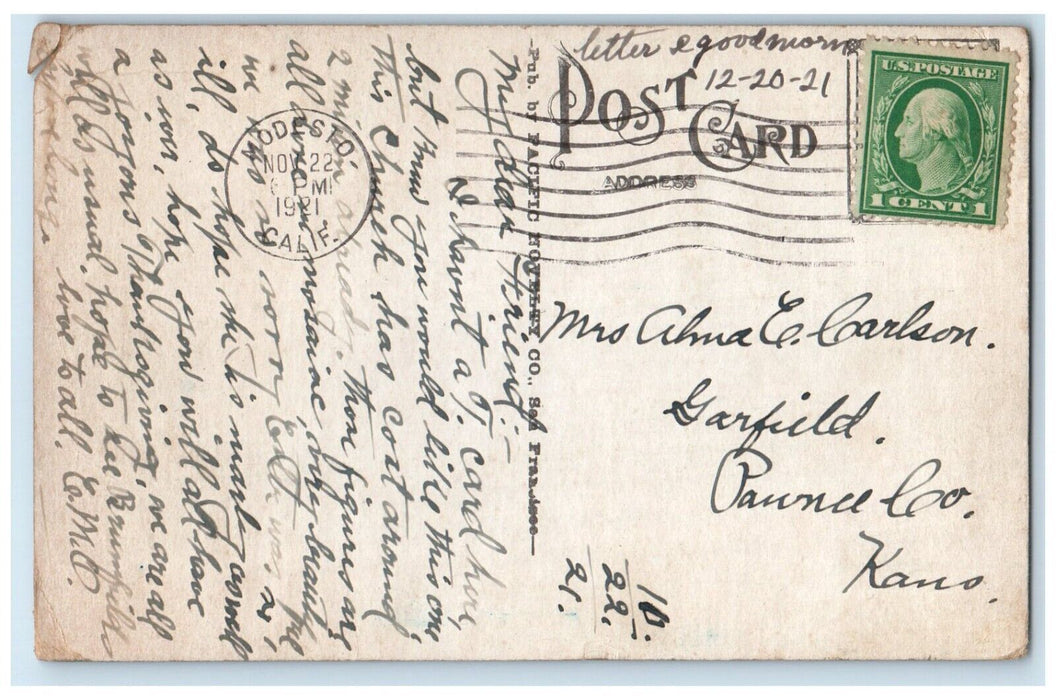 letter & good morn
12-20-21
POST CARD
ADDRESS
U.S. POSTAGE
1 CENT 1
MODESTO,
NOV 22
PM
1921
CALIF.
Pub. by PACIFIC NOVELTY CO., San Francisco
Mrs Alma E. Carlson.
Garfield.
Pawnee Co.
Kans.
10.
22.
21.
My dear friend:-
Havent a T. card here,
but know you would like this one,
this Church has cost around
2 million already. Then figures are
all
mosaic, very beautiful
so sorry Esther was so
ill, do hope she is much better
as soon, hope you will all have
a joyous Thanksgiving, we are all
well as usual, hope to be
love to all. E.M.C.